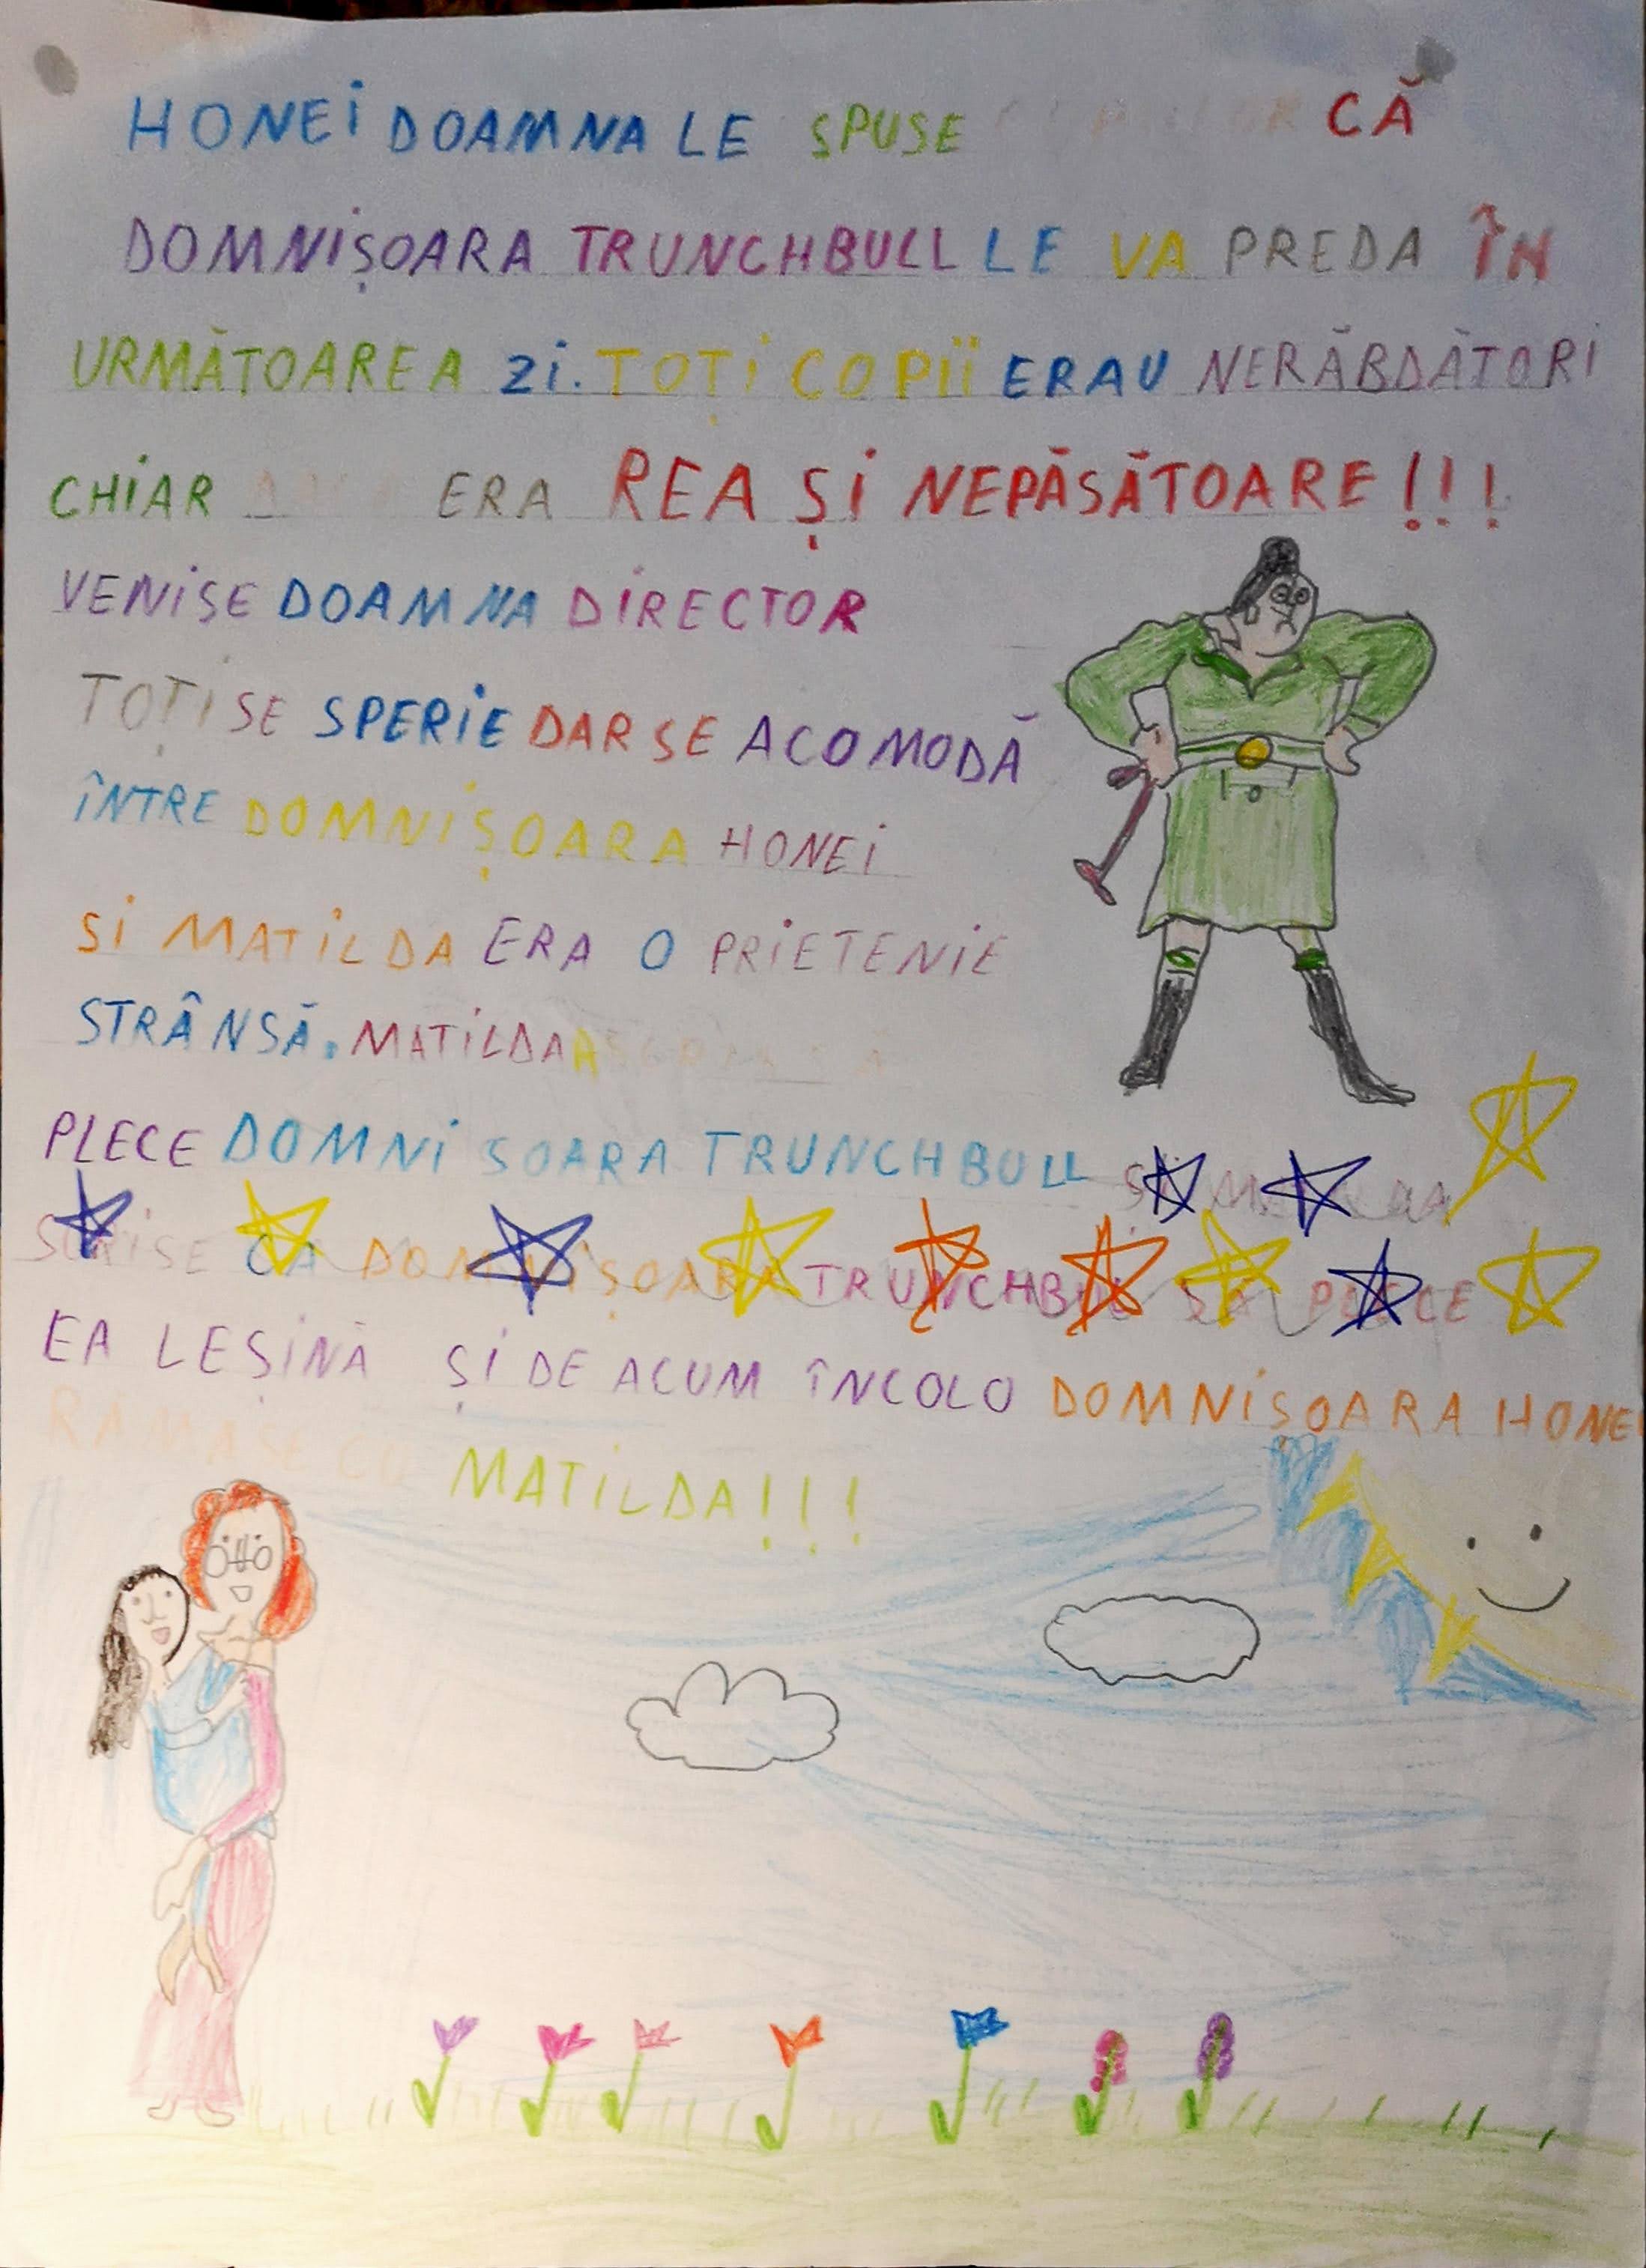 HONEI DOAMNA LE SPUSE CĂ
DOMNIȘOARA TRUNCHBULL LE VA PREDA ÎN
URMĂTOAREA ZI. TOȚI COPII ERAU NERĂBDĂTORI
CHIAR DACĂ ERA REA ȘI NEPĂSĂTOARE!!!
VENISE DOAMNA DIRECTOR
TOȚI SE SPERIE DAR SE ACOMODĂ
ÎNTRE DOMNIȘOARA HONEI
SI MATILDA ERA O PRIETENIE
STRÂNSĂ. MATILDA A
PLECE DOMNI SOARA TRUNCHBULL
SCRISE CA DOMNIȘOARA TRUNCHBULL SĂ PLECE
EA LEȘINĂ ȘI DE ACUM ÎNCOLO DOMNIȘOARA HONEI
RAMASE CU MATILDA!!!